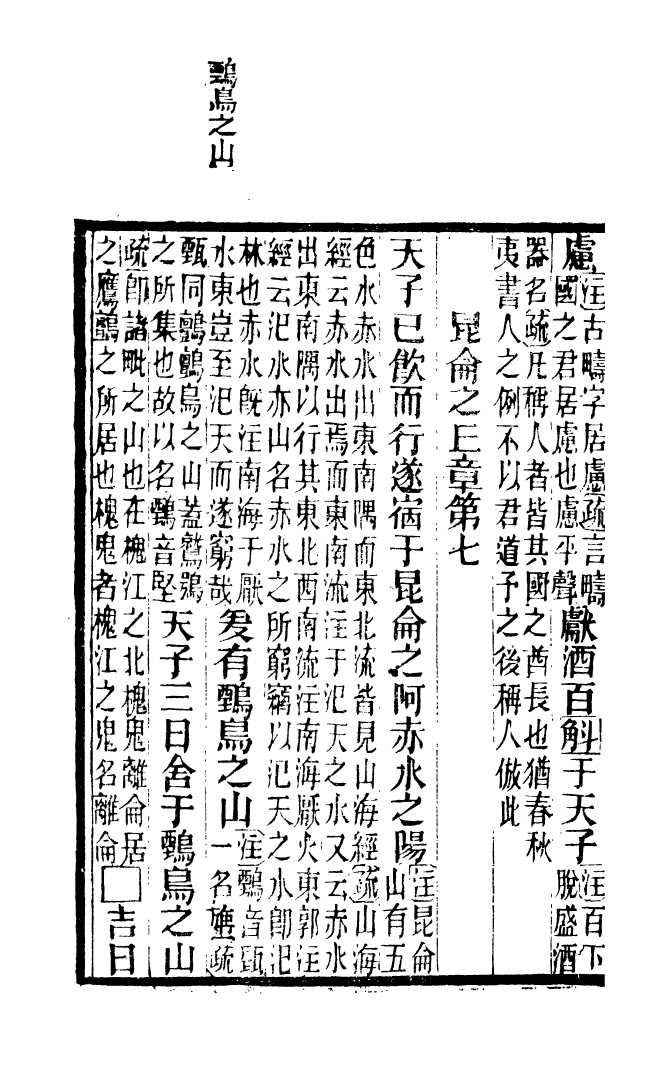 𪃋鳥之山
慮注古疇字居慮疏言疇
國之君居慮也慮平聲
獻酒百斛于天子注百下
脫盛酒
器名疏凡稱人者皆其國之酋長也猶春秋
夷書人之例不以君道予之後稱人倣此
昆侖之丘章第七
天子已飲而行遂宿于昆侖之阿赤水之陽注昆侖
山有五
色水赤水出東南隅而東北流皆見山海經疏山海
經云赤水出焉而東南流注于汜天之水又云赤水
出東南隅以行其東北西南流注南海厭火東郭注
經云汜水亦山名赤水之所窮竊以汜天之水即汜
林也赤水既注南海于厭
水東豈至汜天而遂窮哉
爰有𪃋鳥之山注𪃋音甄
一名疏
甄同鸇鸇鳥之山蓋鷙鴞
之所集也故以名𪃋音堅
天子三日舍于𪃋鳥之山
疏即諸毗之山也在槐江之北槐鬼離侖居
之鷹鸇之所居也槐鬼者槐江之鬼名離侖
□吉日